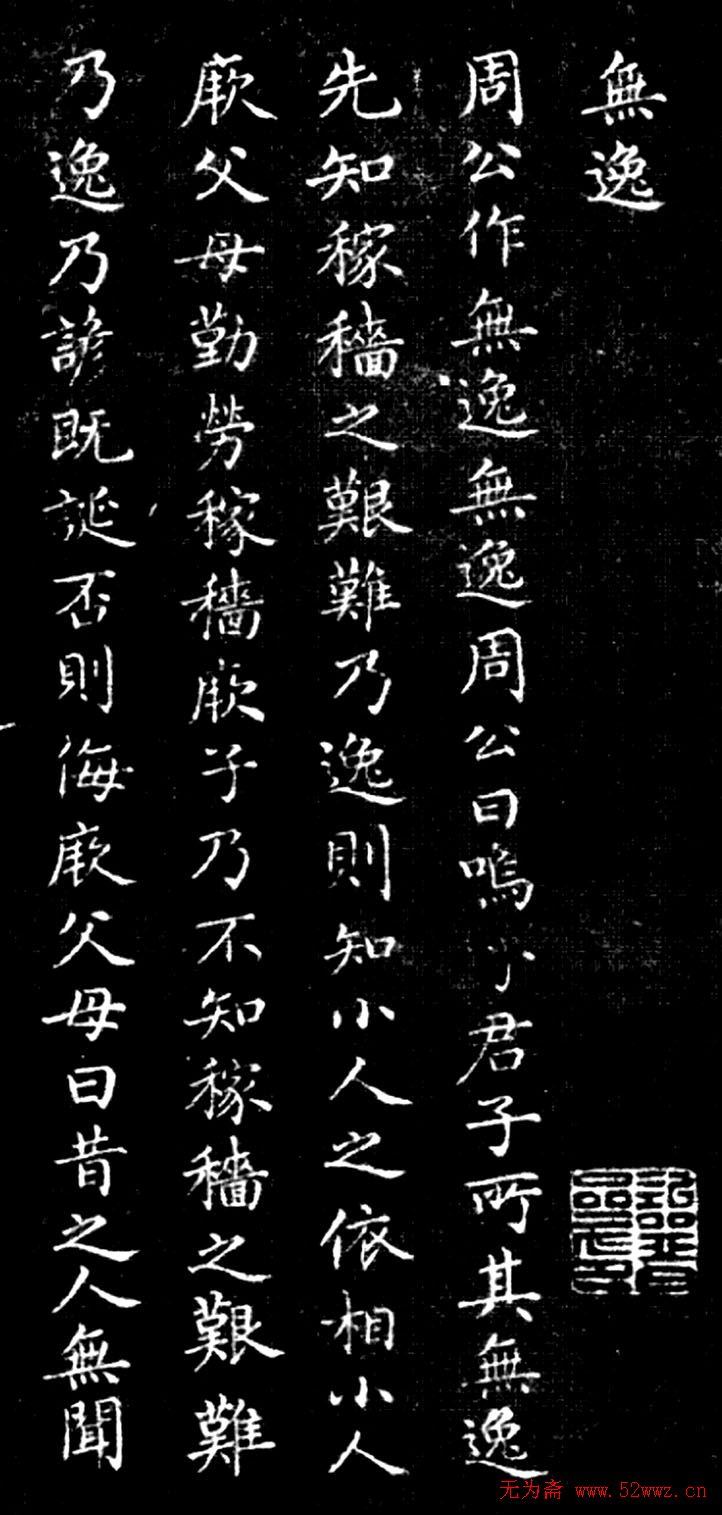 無逸
周公作無逸無逸周公曰嗚乎君子所其無逸
先知稼穡之艱難乃逸則知小人之依相小人
厥父母勤勞稼穡厥子乃不知稼穡之艱難
乃逸乃諺既誕否則侮厥父母曰昔之人無聞
无为斋 www.52wwz.cn